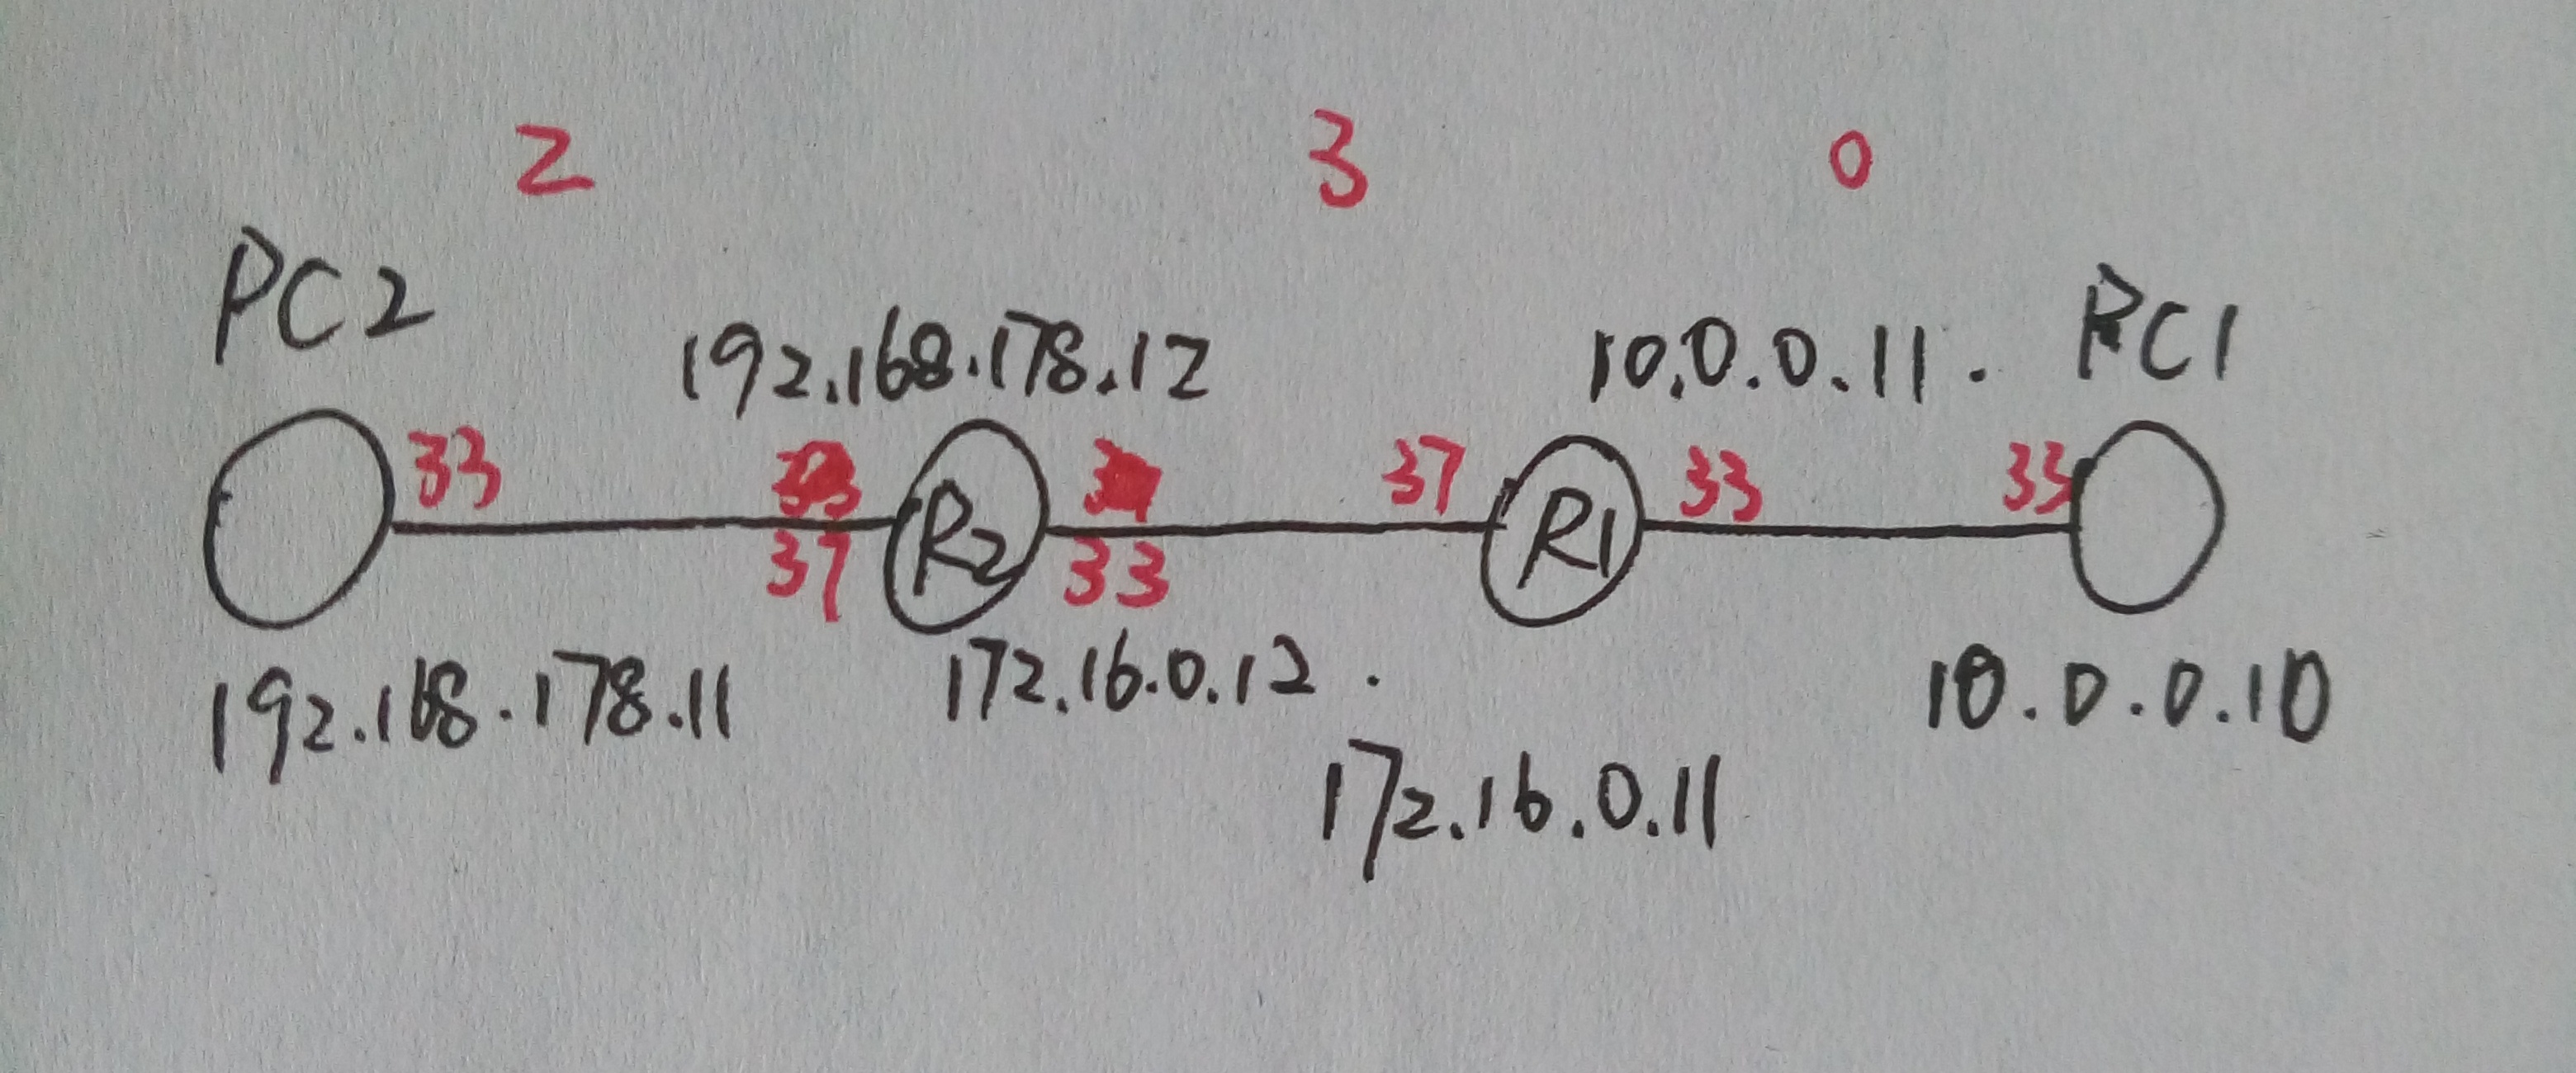 2 3 0
PC2
192.168.178.12
10.0.0.11.
PC1
33
37
33
33
R2
R1
37
33
192.168.178.11
172.16.0.12.
10.0.0.10
172.16.0.11